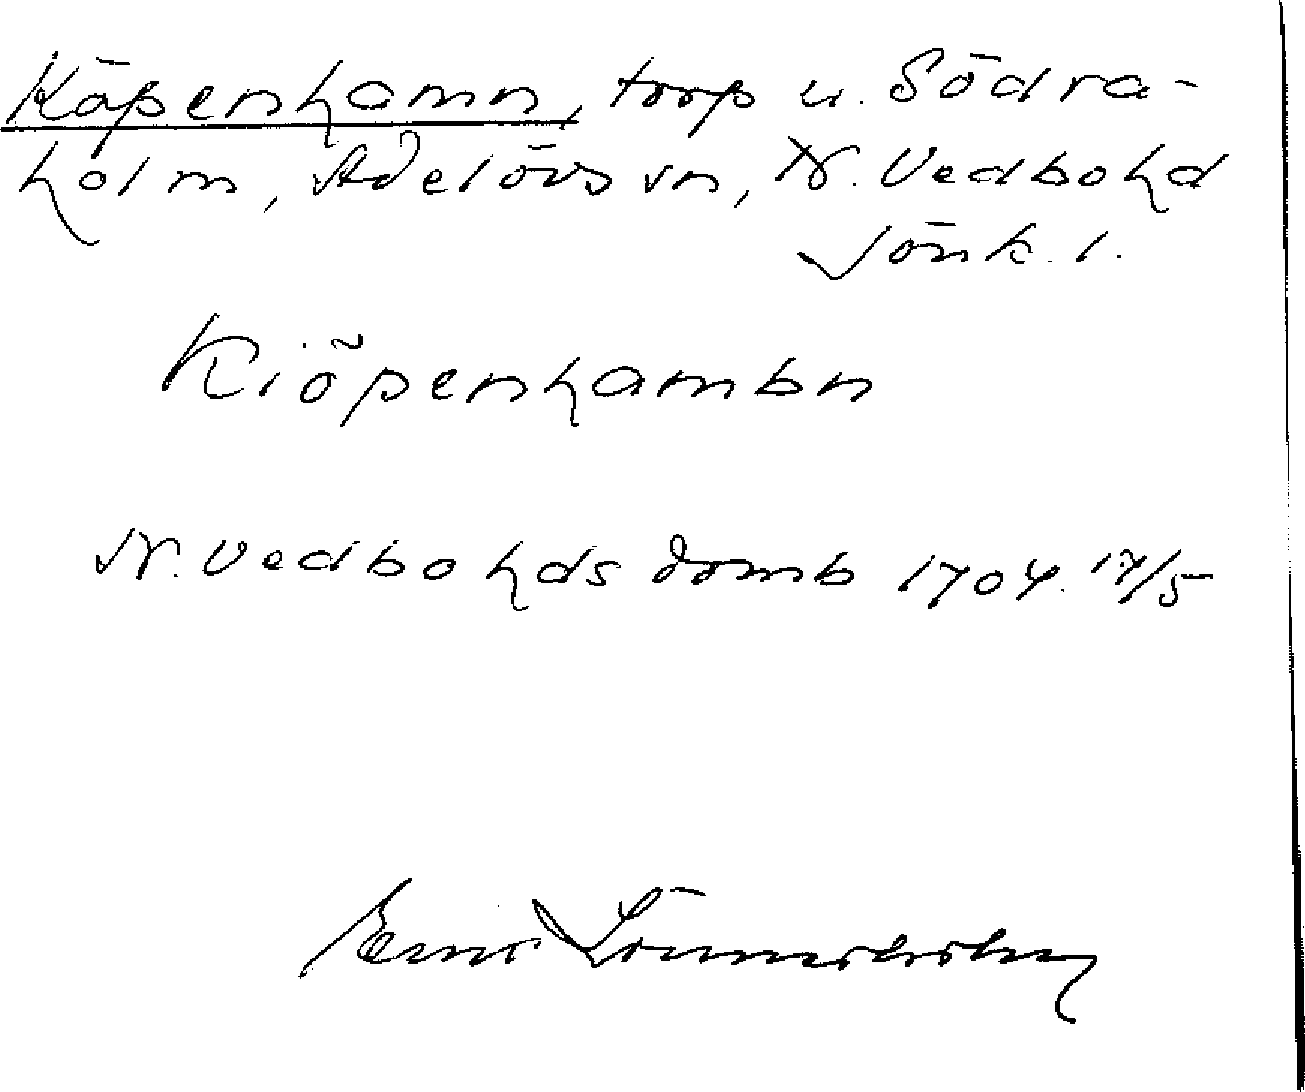 Köpenhamn, torp u. Södra-
holm, Adelövs sn, N. Vedbohd
Jönk. l.
Kiöpenhambn
N. Vedbohds domb 1704. 17/5